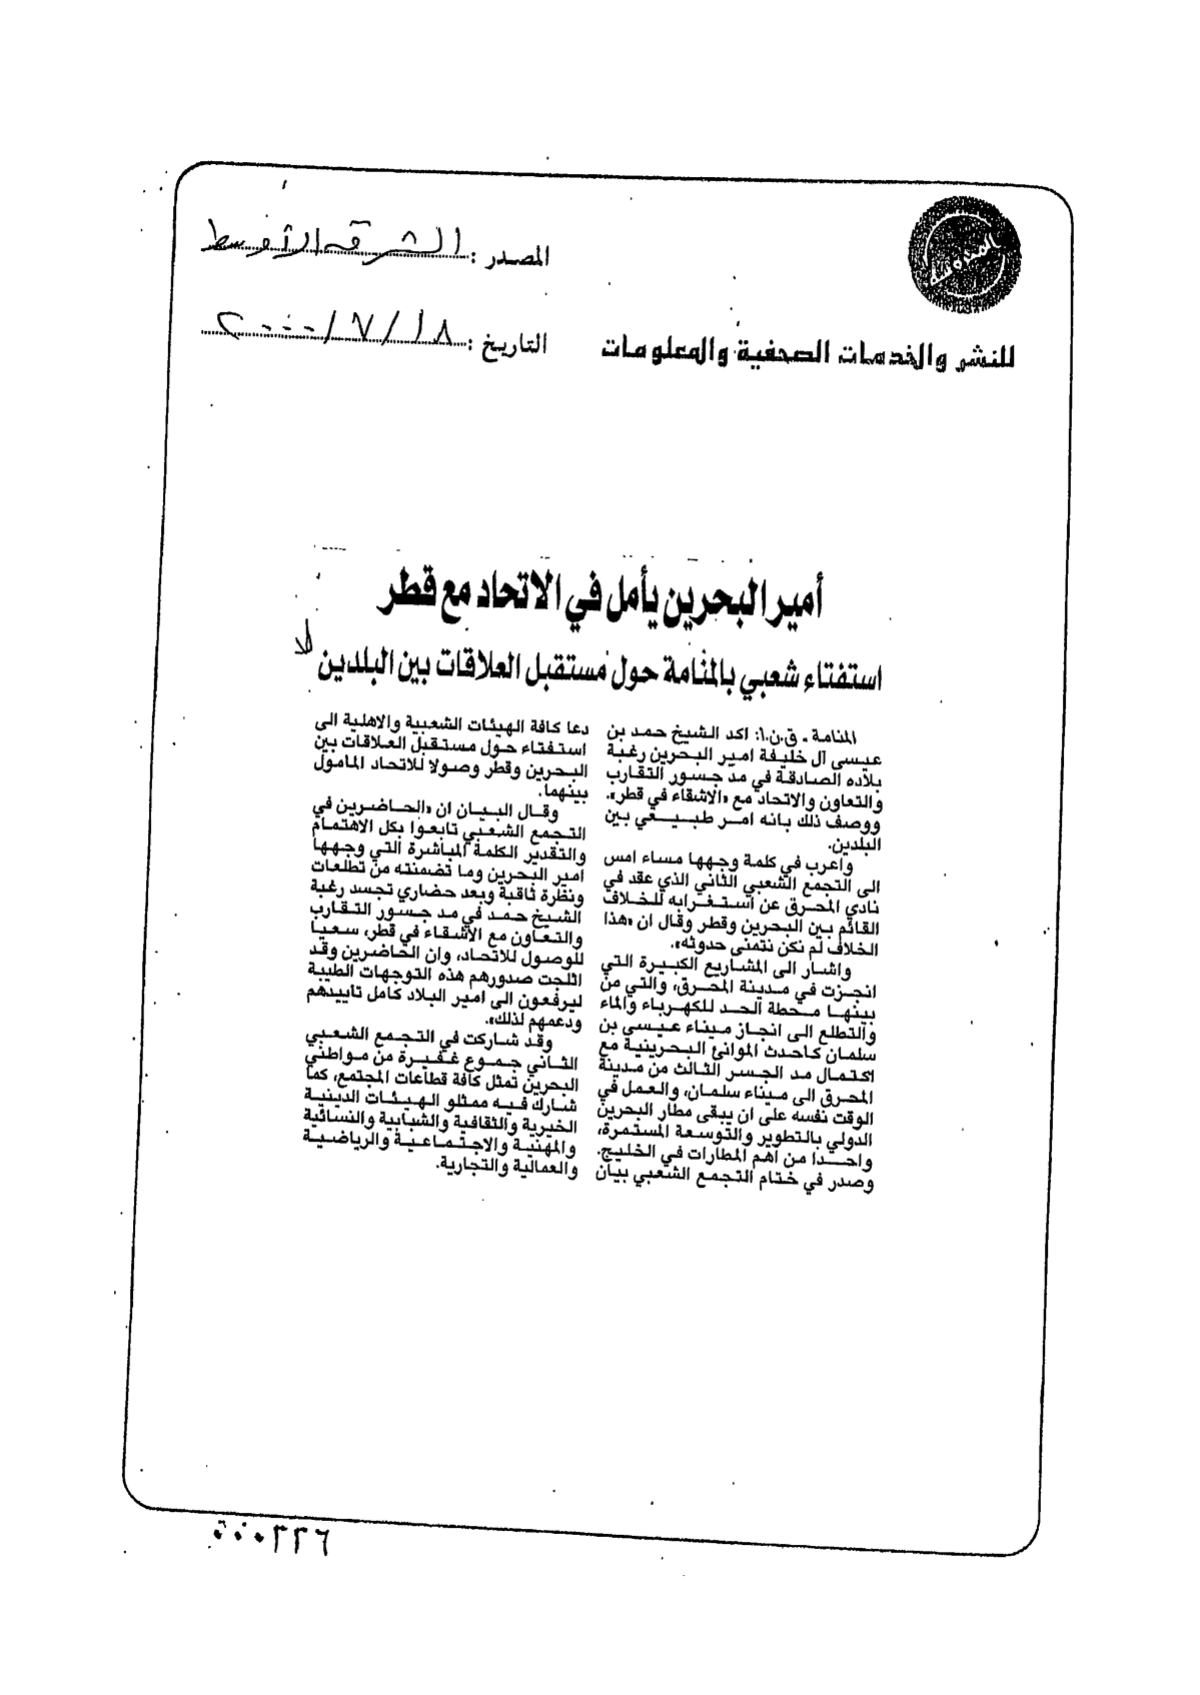 المصدر : الشرق الأوسط
للنشر والخدمات الصحفية والمعلومات
التاريخ : ١٨/٧/٢٠٠٠
أمير البحرين يأمل في الاتحاد مع قطر
استفتاء شعبي بالمنامة حول مستقبل العلاقات بين البلدين
المنامة ـ ق.ن.ا: اكد الشيخ حمد بن
عيسى آل خليفة امير البحرين رغبة
بلاده الصادقة في مد جسور التقارب
والتعاون والاتحاد مع «الاشقاء في قطر».
ووصف ذلك بانه امر طبيعي بين
البلدين.
واعرب في كلمة وجهها مساء امس
الى التجمع الشعبي الثاني الذي عقد في
نادي المحرق عن استغرابه للخلاف
القائم بين البحرين وقطر وقال ان «هذا
الخلاف لم نكن نتمنى حدوثه».
واشار الى المشاريع الكبيرة التي
انجزت في مدينة المحرق، والتي من
بينها محطة الحد للكهرباء والماء
والتطلع الى انجاز ميناء عيسى بن
سلمان كاحدث الموانئ البحرينية مع
اكتمال مد الجسر الثالث من مدينة
المحرق الى ميناء سلمان، والعمل في
الوقت نفسه على ان يبقى مطار البحرين
الدولي بالتطوير والتوسعة المستمرة،
واحدا من اهم المطارات في الخليج.
وصدر في ختام التجمع الشعبي بيان
دعا كافة الهيئات الشعبية والاهلية الى
استفتاء حول مستقبل العلاقات بين
البحرين وقطر وصولا للاتحاد المامول
بينهما.
وقال البيان ان «الحاضرين في
التجمع الشعبي تابعوا بكل الاهتمام
والتقدير الكلمة المباشرة التي وجهها
امير البحرين وما تضمنته من تطلعات
ونظرة ثاقبة وبعد حضاري تجسد رغبة
الشيخ حمد في مد جسور التقارب
والتعاون مع الاشقاء في قطر، سعيا
للوصول للاتحاد، وان الحاضرين وقد
اثلجت صدورهم هذه التوجهات الطيبة
ليرفعون الى امير البلاد كامل تاييدهم
ودعمهم لذلك».
وقد شاركت في التجمع الشعبي
الثاني جموع غفيرة من مواطني
البحرين تمثل كافة قطاعات المجتمع، كما
شارك فيه ممثلو الهيئات الدينية
الخيرية والثقافية والشبابية والنسائية
والمهنية والاجتماعية والرياضية
والعمالية والتجارية.